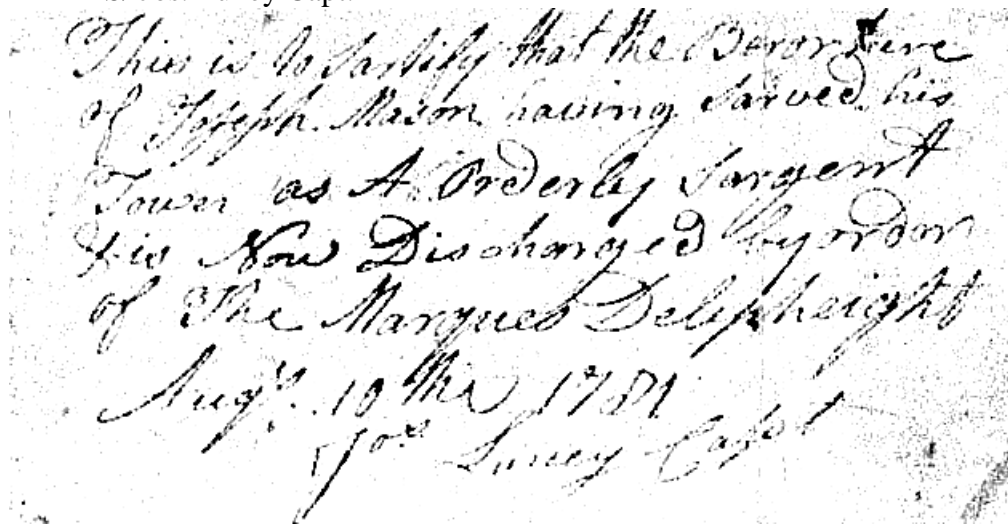 This is to Sartify that the Beror here
of Joseph Mason having Sarved his
Tower as A Orderly Sargent
& is Now Discharged by ordor
of The Marques Delepheight
Augst. 10th 1781
Jos Linney Capt